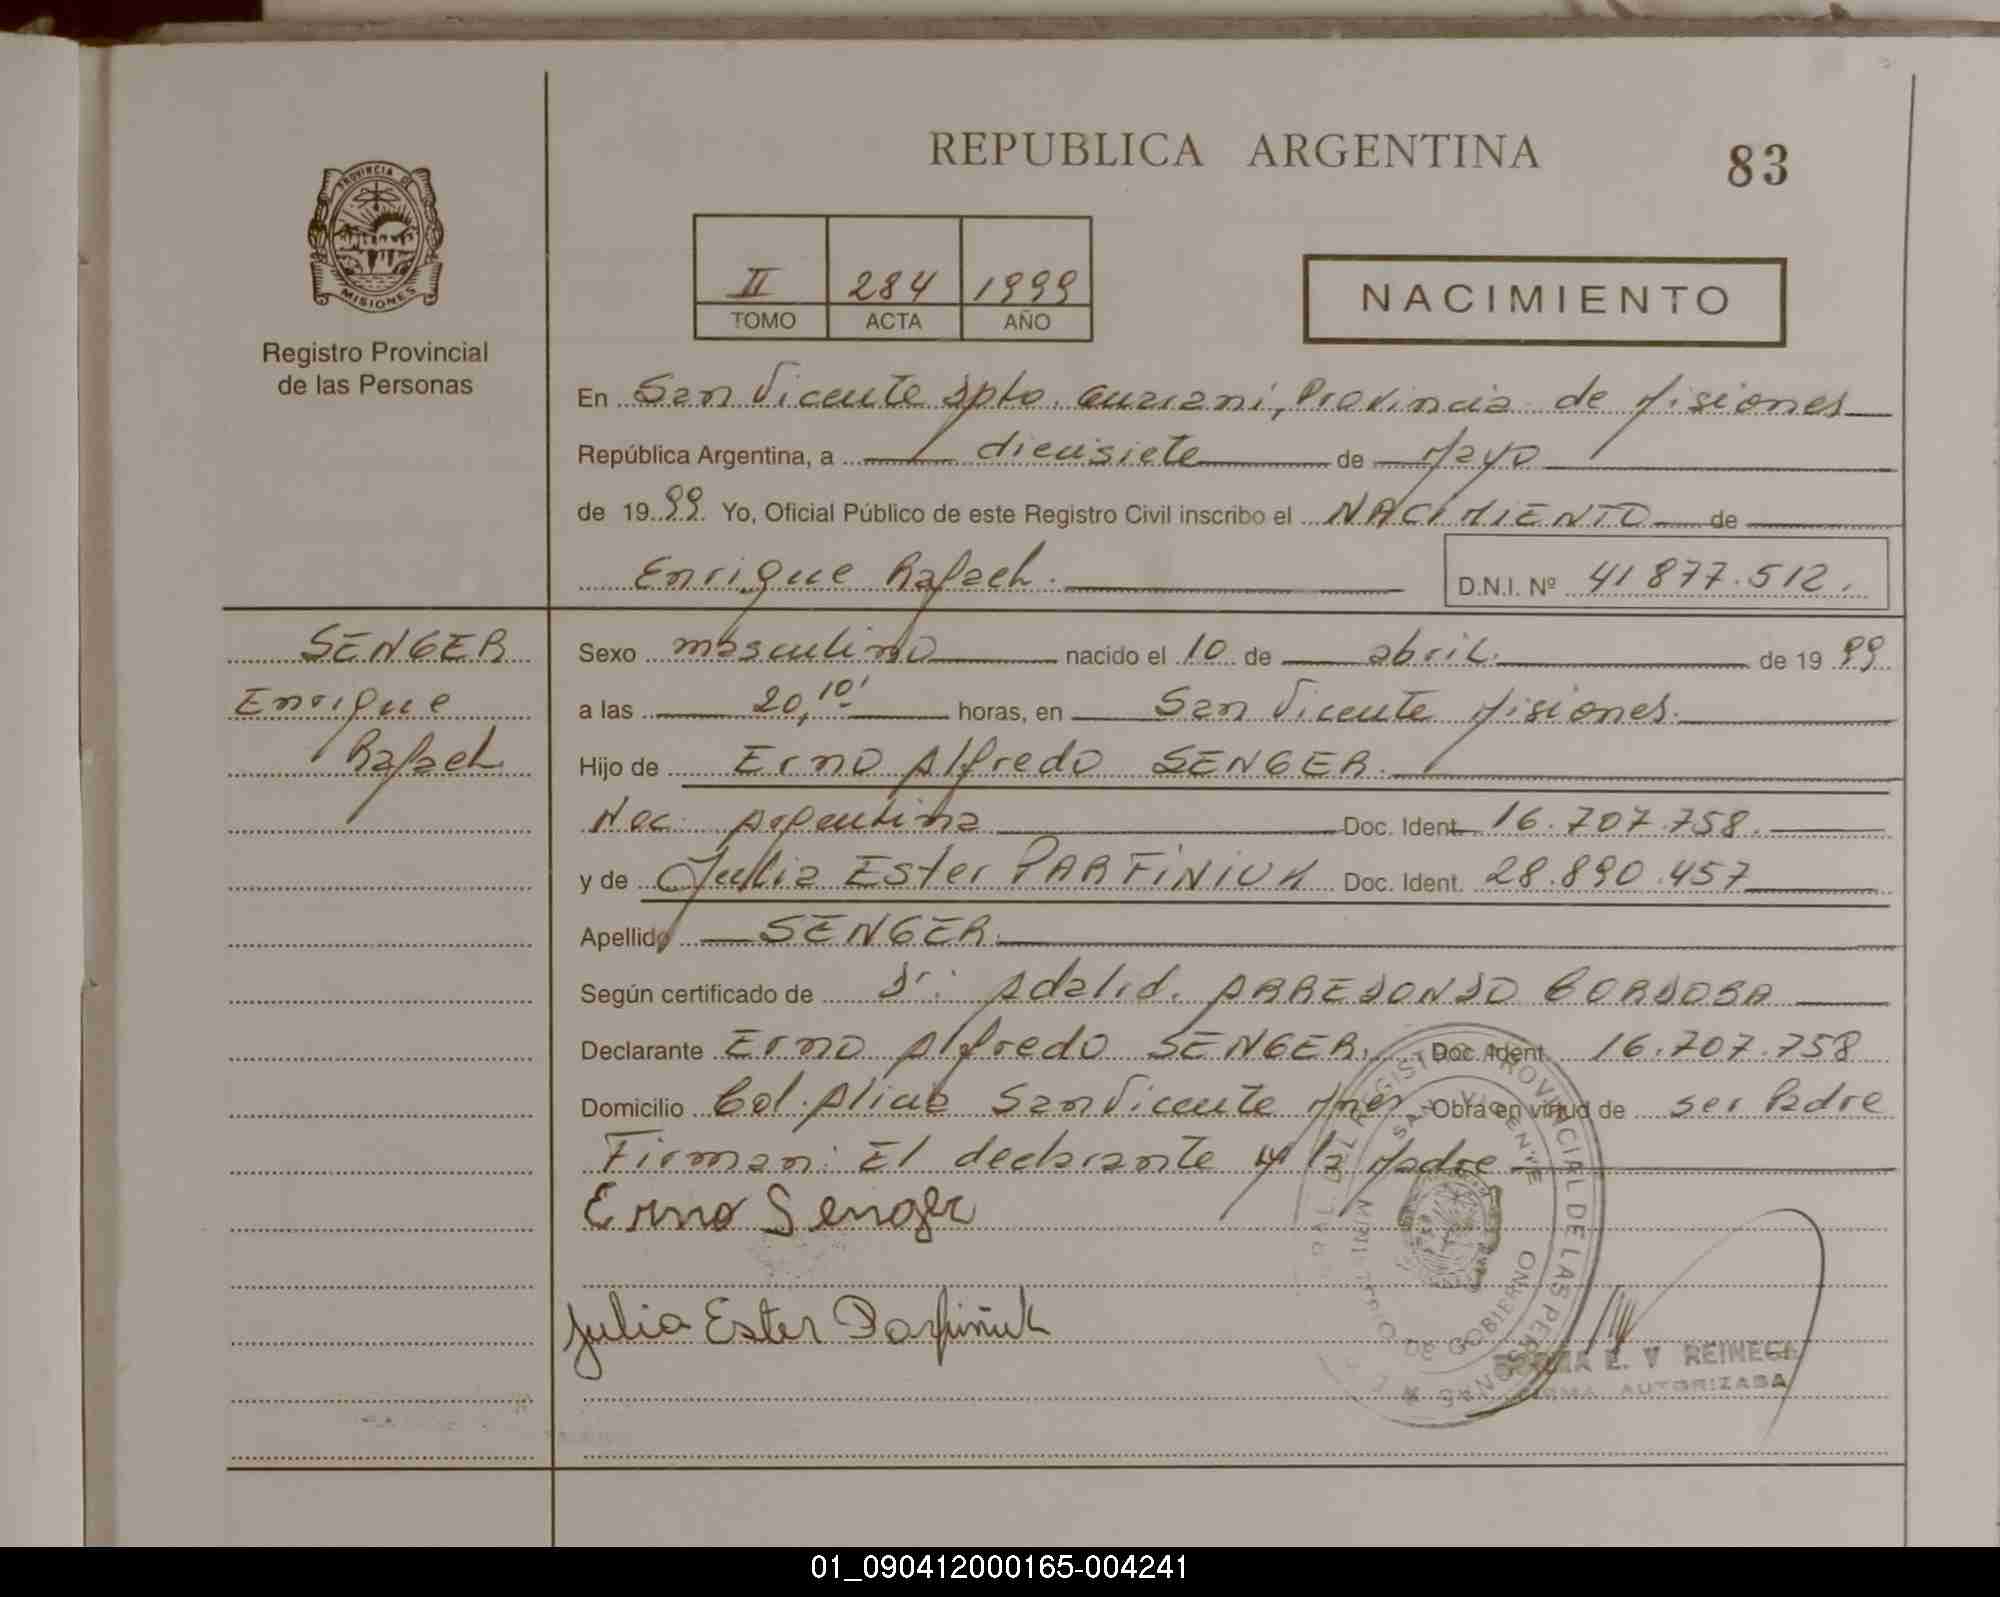 REPUBLICA ARGENTINA
83
PROVINCIA DE
MISIONES
Registro Provincial
de las Personas
II 284 1999
TOMO ACTA AÑO
NACIMIENTO
En San Vicente Dpto. Guarani, Provincia de Misiones
República Argentina, a diecisiete de Mayo
de 1999 Yo, Oficial Público de este Registro Civil inscribo el NACIMIENTO de
Enrique Rafael.
D.N.I. Nº 41877.512.
SENGER
Enrique
Rafael
Sexo masculino nacido el 10 de abril. de 1999
a las 20,10' horas, en San Vicente Misiones.
Hijo de Erno Alfredo SENGER.
Nac. Argentina Doc. Ident. 16.707.758.
y de Julia Ester PARFINIUK Doc. Ident. 28.890.457
Apellido SENGER.
Según certificado de Dr. Adalid. ARREDONDO CORDOBA
Declarante Erno Alfredo SENGER. Doc. Ident. 16.707.758
Domicilio Col. Aliada San Vicente Mnes Obra en virtud de ser Padre
Firman: El declarante y la Madre
Erno Senger
Julia Ester Parfiniuk
REGISTRO PROVINCIAL DE LAS PERSONAS
SAN VICENTE
DE GOBIERNO
E. V REINECK
FIRMA AUTORIZADA
01_090412000165-004241